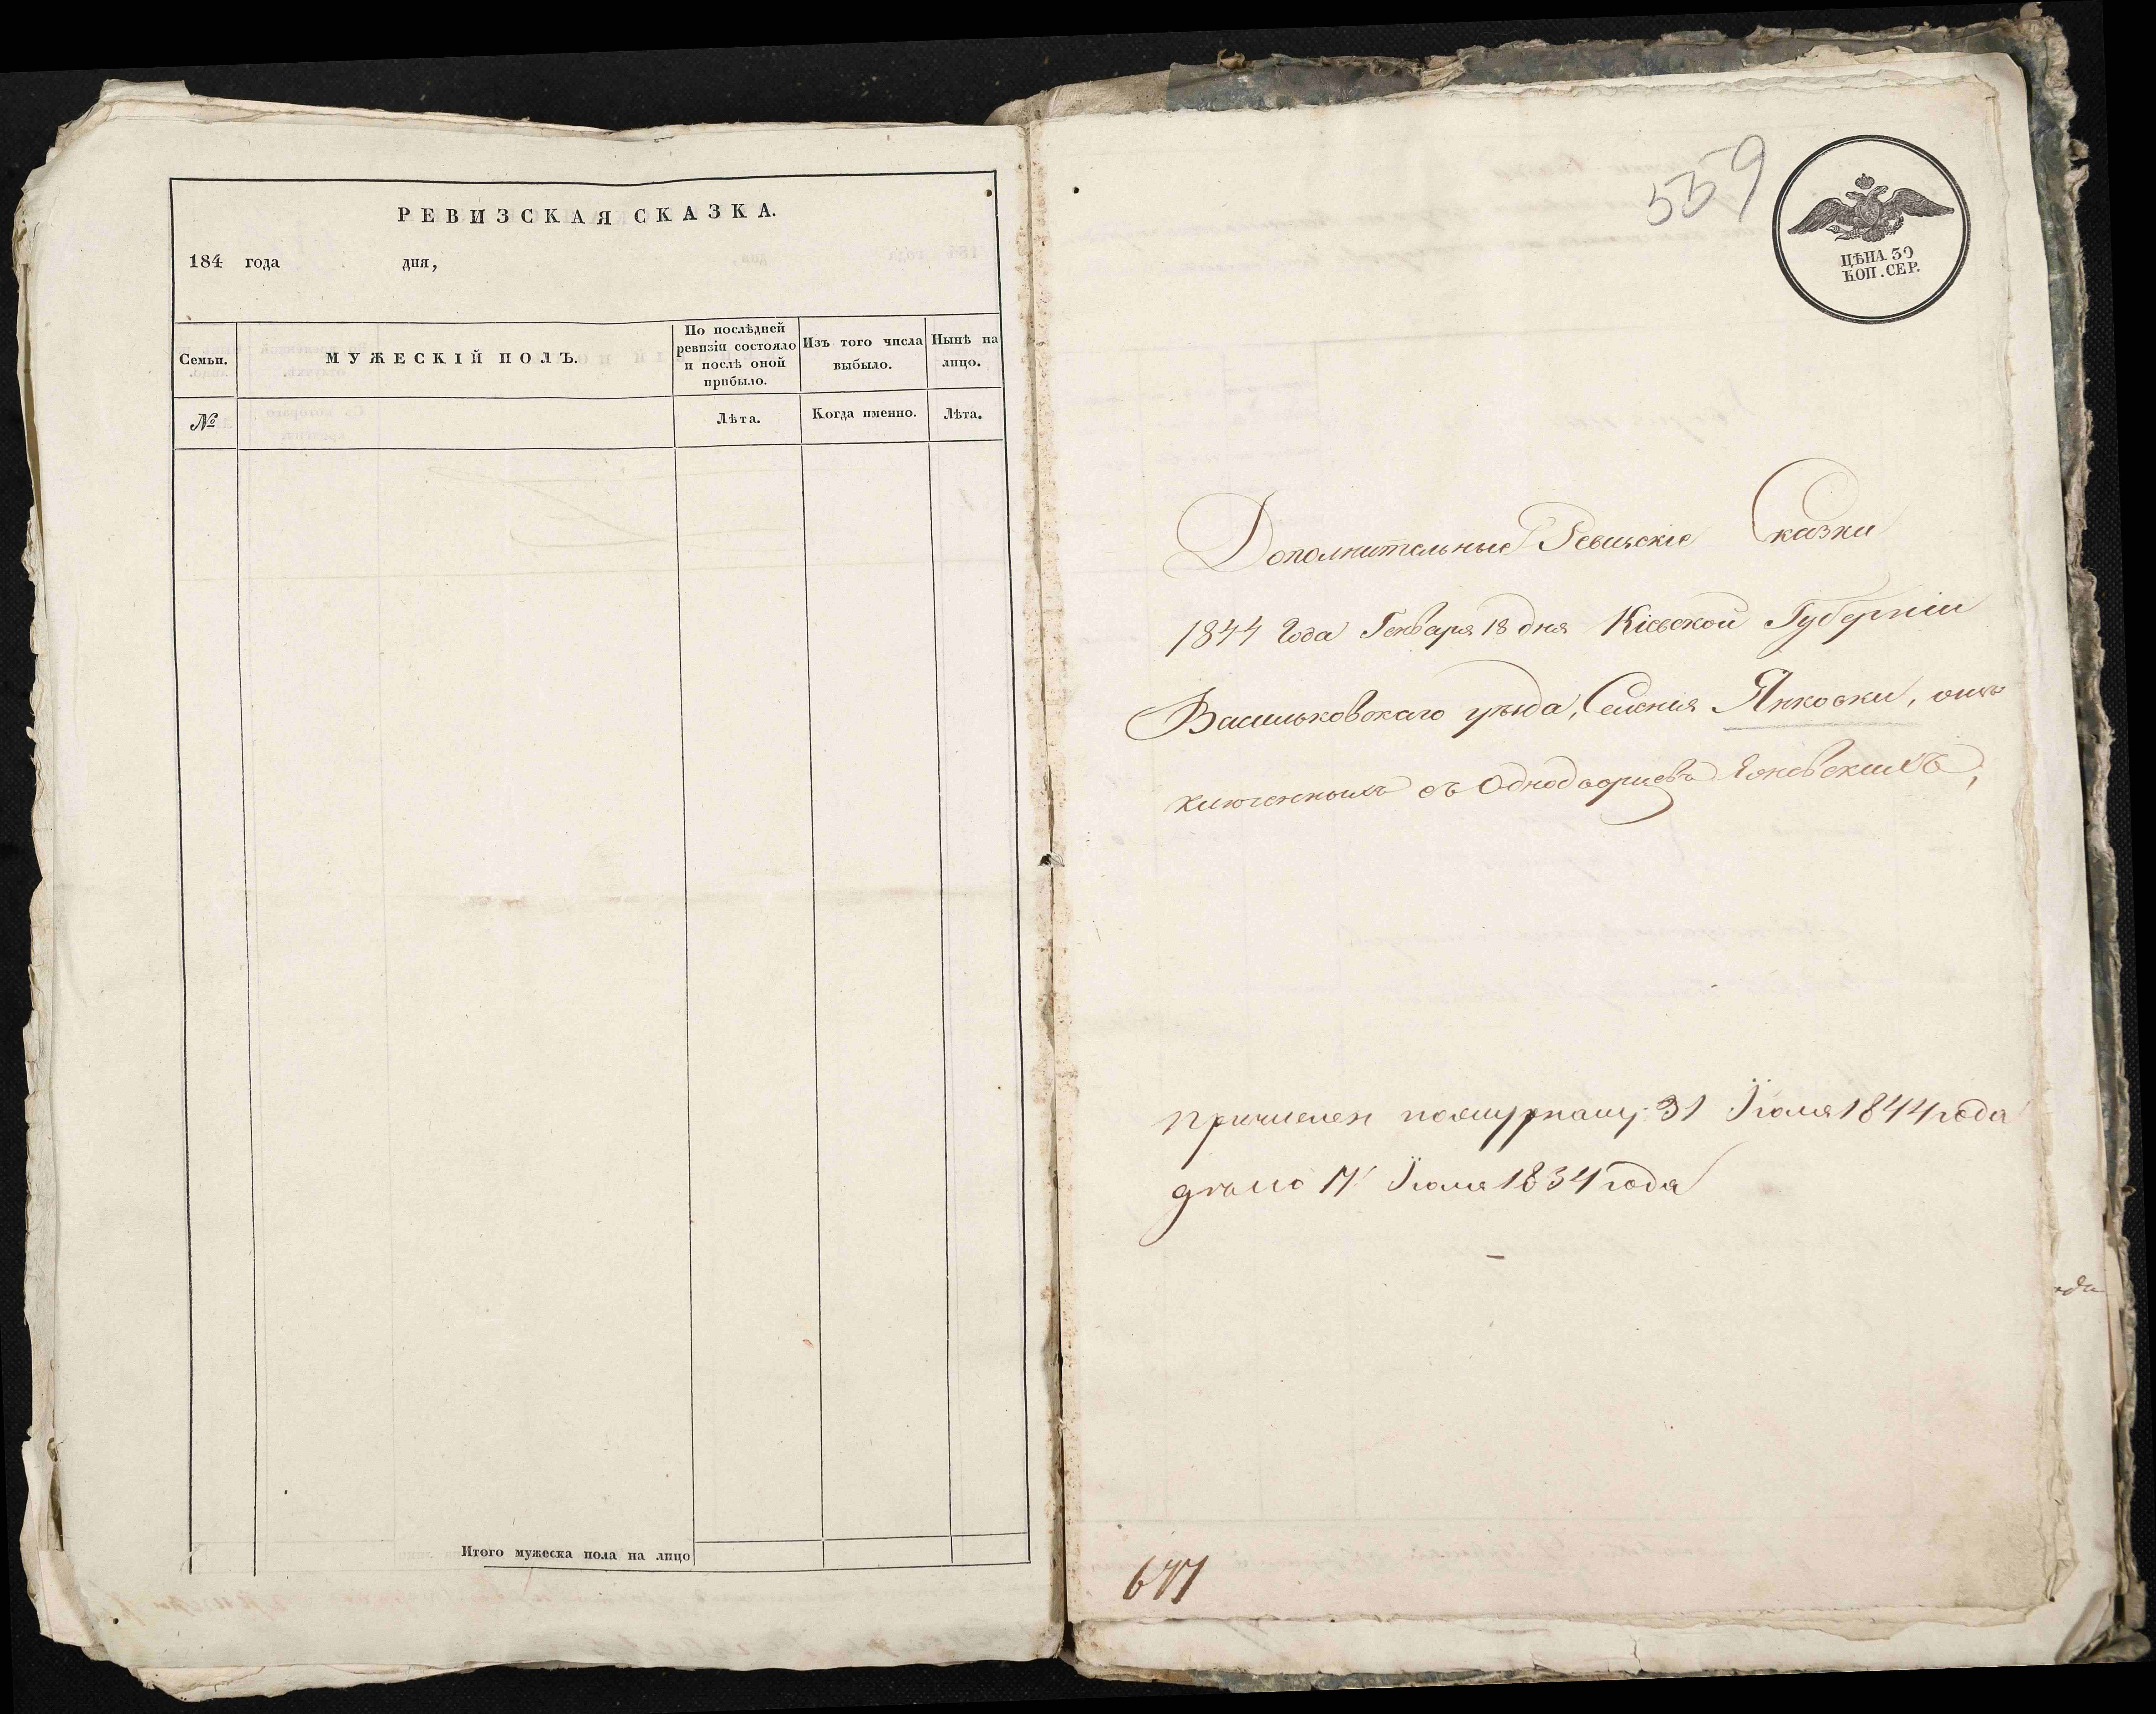 РЕВИЗСКАЯ СКАЗКА.
184 года дня,
Семьи.
МУЖЕСКІЙ ПОЛЪ.
По послѣдней ревизіи состояло и послѣ оной прибыло.
Изъ того числа выбыло.
Нынѣ на лицо.
№
Лѣта.
Когда именно.
Лѣта.
Итого мужеска пола на лицо
559
ЦѢНА 30
КОП. СЕР.
Дополнительные Ревизскіе Сказки
1844 Года Генваря 18 дня Кіевской Губерніи
Васильковскаго уѣзда, Селенія Янковки,
съ Однодворцевъ
31 Іюля 1844 года
дѣло Іюля 1834 года
677